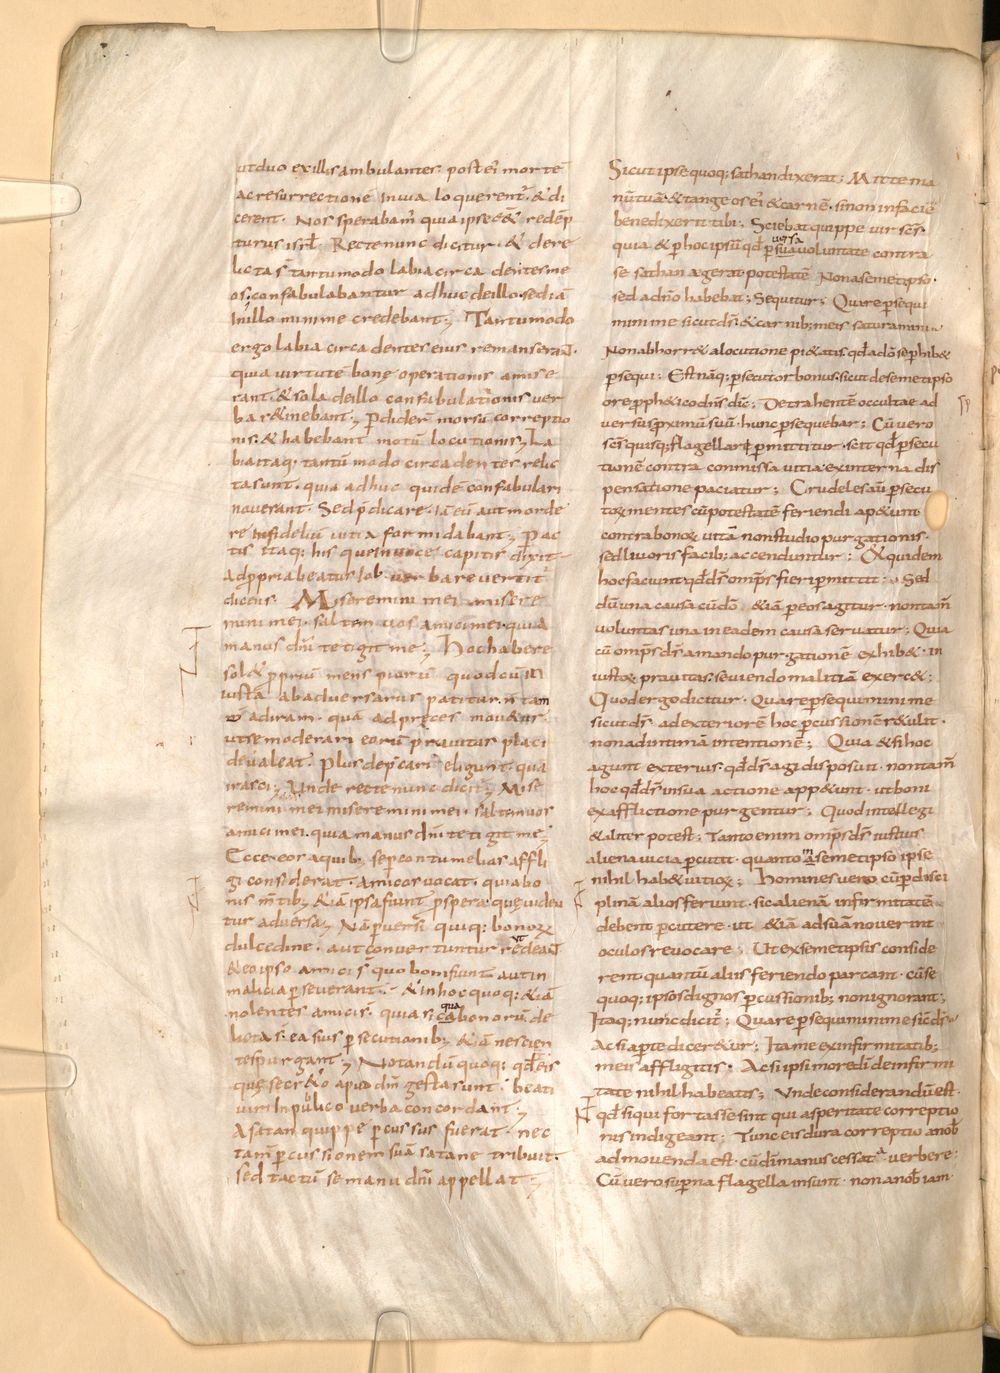 ut duo ex illis ambulantes post ei mortē
ac resurrectionē in via loquerent̄. & di
cerent. Nos sperabam̄ quia ipse eēt redēp
turus isrl̄. Recte nunc dicitur. & dere
licta s̄ tantummodo labia circa dentes me
os; confabulabantur adhuc de illo. sed iā
In illo minime credebant; Tantumodo
ergo labia circa dentes eius remanserant.
quia virtutē bonę operationis amise
rant. & sola de illo confabulationis ver
ba r&inebant; P̄diderꝰ morsū correptio
nis. & habebant motū locutionis; La
bia itaq; tantū modo circa dentes relic
ta sunt. quia adhuc quidē confabulari
noverant. Sed p̄dicare. iā eū aut morde
re infideliū vitia formidabant; P̄ac
tis itaq; his que in voce capitis dixit
ad p̄pria beatus Iob verba revertit̄
dicens. Miseremini mei misere
mini mei. saltem vos amici mei. quia
manus dn̄i tetigit me; Hoc habere
sol& p̄priū mens piorū quod cū in
iusta ab adversarus patitur. n̄ tam
ad iram. qua ad pręces mou&ur.
ut se moderari eorū pravitas placi
de valeat. Plus dep̄cari eligunt. qua
irasci; Unde recte nunc dicit̄; Mise
remini mei miseremini mei. saltem vos
amici mei. quia manus dn̄i tetigit me;
Ecce eos a quib; sep contumelias affli
gi considerat. Amicos vocat. quia bo
nis m̄tib; &iā ipsa fiunt p̄spera. quę viden
tur adversa; Nā p̄versi quiq; bonoꝝ
dulcedine. aut convertuntur ut redeant
& eo ipso amici s̄ quo boni fiunt. aut in
malicia p̄severant. & in hoc quoq; &iā
nolentes amici s̄. quia s̄ qua bonorū de
licta s̄. ea suis p̄secutionib; &iā nescien
tes purgant; Notandū quoq; qd̄ eis
quę secr&o apud dm̄ gesta sunt. beati
viri In publico verba concordant;
A satan quippe p̄cussus fuerat. nec
tam̄ p̄cussionem suā satane tribuit.
sed tactū se manu dn̄i appellat;
Sicut ipse quoq; sathan dixerat; Mitte ma
nū tuā. & tange os ei & carnē. si non in faciē
benedixerit tibi; Sciebat quippe vir scs̄.
quia & p̄ hoc ipsū qd̄ p̄versa voluntate contra
se sathan agerat potestatē Non a semetipso.
sed a dn̄o habebat; Sequitur; Quare p̄sequi
mini me sicut ds̄. & carnib; meis saturamini..
Non abhorr& a locutione pi&atis qd̄ a dō se p̄hib&
p̄sequi; Est nāq; p̄secutor bonus. sicut de semetipso
ore p̄ph&ico dn̄s dic̄; Detrahentē occultae ad
versus p̄ximū suū. hunc p̄sequebar; Cū vero
scs̄ quisq; flagellari p̄mittitur. scit qd̄ p̄secu
tionē contra commissa vitia. ex interna dis
pensatione paciatur; Crudeles aū p̄secu
toꝝ mentes cū potestatē feriendi ap&unt
contra bonoꝝ vitā non studio purgationis.
sed livoris facib; accenduntur; Et quidem
hoc faciunt. qd̄ ds̄ omp̄s fieri p̄mittit; Sed
dū una causa cū dō &iā p̄ eos agitur. non tam̄
voluntas una in eadem causa servatur; Quia
cū omp̄s ds̄ amando purgationē exhib&. in
iustoꝝ pravitas. seviendo malitiā exerc&;
Quod ergo dicitur. Quare p̄sequimini me
sicut ds̄. ad exteriorē hoc p̄cussionē r&ulit.
non ad intimā intentionē; Quia &si hoc
agunt exterius. qd̄ ds̄ agi disposuit. non tam̄
hoc qd̄ ds̄ in sua actione app&unt. ut boni
ex afflictione purgentur; Quod intellegi
& aliter potest; Tanto enim omp̄s ds̄ iustius
aliena vicia p̄cutit. quanto in semetipso ipse
nihil hab& vitioꝝ; Homines vero cū p̄ disci
plinā alios feriunt. sic alienā infirmitatē
debent p̄cutere. ut &iā ad suā noverint
oculos revocare; Ut ex semetipsis conside
rent quantū aliis feriendo parcant. cū se
quoq; ipsos dignos p̄cussionib; non ignorant;
Itaq; nunc dicit̄; Quare p̄sequimini me sic ds̄.
Ac si aperte dicer&ur; Ita me ex infirmitatib;
meis affligitis. Ac si ipsi more dī de infirmi
tate nihil habeatis; Unde considerandū est.
qd̄ si qui fortasse sint qui asperitate correptio
nis indigeant; Tunc eis dura correptio a nob̄
admovenda est. cū dī manus cessat a verbere;
Cū vero superna flagella insunt. non a nob̄ iam